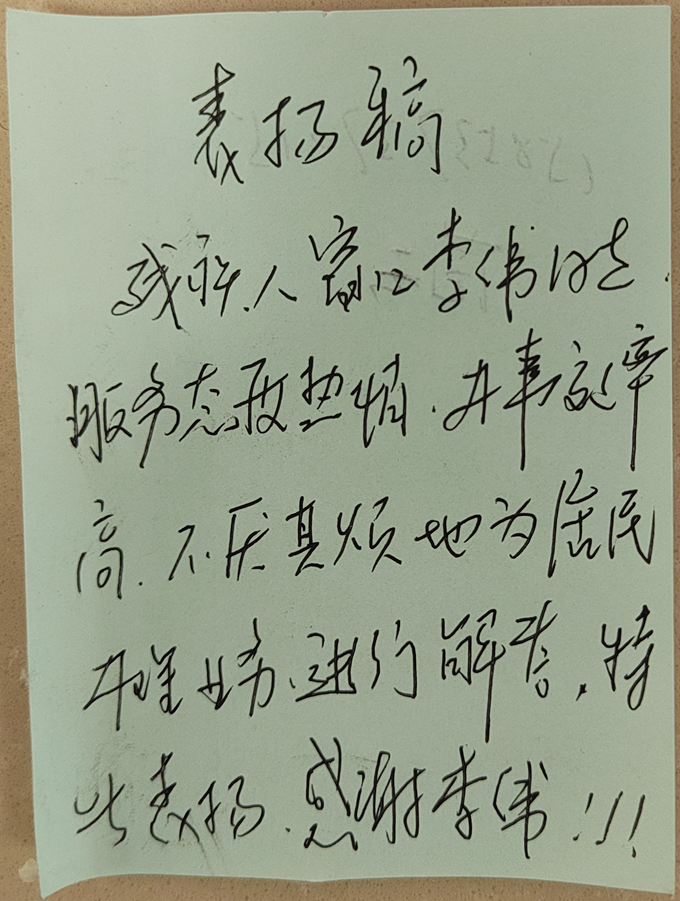 表扬稿
残疾人窗口李伟同志，
服务态度热情、办事效率
高、不厌其烦地为居民
办理业务、进行解答，特
此表扬、感谢李伟!!!